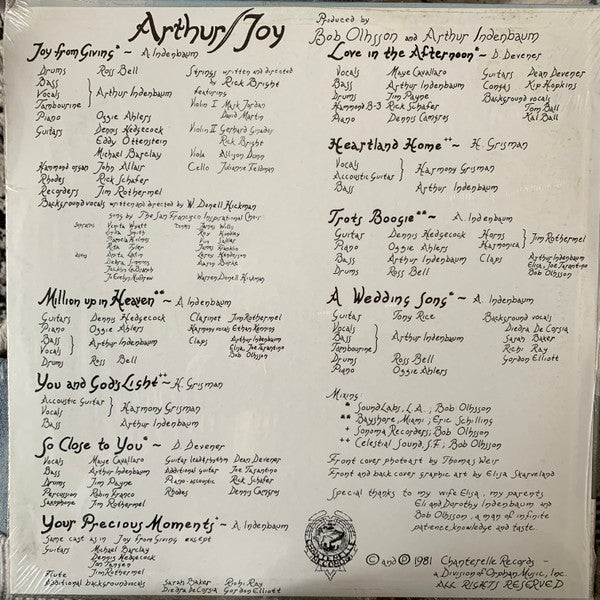 Arthur/Joy
Produced by
Bob Olhsson and Arthur Indenbaum
Joy from Giving* ~ A. Indenbaum
Drums Ross Bell
Bass
Vocals } Arthur Indenbaum
Tambourine
Piano Oggie Ahlers
Guitars Dennis Hedgecock
Eddy Ottenstein
Michael Barclay
Hammond organ John Allair
Rhodes Rick Schafer
Recorders Jim Rothermel
Strings written and directed
by Rick Bright
featuring
Violin I Mark Jordan
David Martin
Violin II Gerhard
Rick Bright
Viola Allison Dunn
Cello Julianne Feldman
Background vocals written and directed by W. Donell Hickman
sung by The San Francisco Inspirational Choir
Sopranos Venita Wyatt
Linda Smith
Pamela Holms
Rita Tyler
Altos
Debra Simmons
Tenors James Wills
Warren Donell Hickman
Million up in Heaven** ~ A. Indenbaum
Guitars Dennis Hedgecock
Piano Oggie Ahlers
Bass
Vocals } Arthur Indenbaum
Drums Ross Bell
Clarinet Jim Rothermel
Harmony vocals Ethan Kenning
Claps Arthur Indenbaum
Elisa, Joe Tarantino
Bob Olhsson
You and God's Light++ ~ H. Grisman
Accoustic Guitar
Vocals } Harmony Grisman
Bass Arthur Indenbaum
So Close to You* ~ D. Devener
Vocals Maye Cavallaro
Bass Arthur Indenbaum
Drums Jim Payne
Percussion Robin Franco
Saxophone Jim Rothermel
Guitar lead, rhythm Dean Devener
Additional guitar Joe Tarantino
Piano-acoustic Rick Schafer
Rhodes Dennis Camgros
Your Precious Moments+ ~ A. Indenbaum
Same cast as in Joy from Giving except
Guitars Michael Barclay
Dennis Hedgecock
Jon Tansen
Flute Jim Rothermel
Additional background vocals Sarah Baker Richi Ray
Diedra DeCorsia Gordon Elliott
Love in the Afternoon* ~ D. Devener
Vocals Maye Cavallaro
Bass Arthur Indenbaum
Drums Jim Payne
Hammond B-3 Rick Schafer
Piano Dennis Camgros
Guitars Dean Devener
Congas Kip Hopkins
Background vocals
Tom Ball
Kal Ball
Heartland Home++ ~ H. Grisman
Vocals
Accoustic Guitar } Harmony Grisman
Bass Arthur Indenbaum
Trots Boogie** ~ A. Indenbaum
Guitar Dennis Hedgecock
Piano Oggie Ahlers
Bass Arthur Indenbaum
Drums Ross Bell
Horns
Harmonica } Jim Rothermel
Claps Arthur Indenbaum
Elisa, Joe Tarantino
Bob Olhsson
A Wedding Song* ~ A. Indenbaum
Guitar Tony Rice
Vocals
Bass } Arthur Indenbaum
Tambourine
Drums Ross Bell
Piano Oggie Ahlers
Background vocals
Diedra De Corsia
Sarah Baker
Richi Ray
Gordon Elliott
Mixing:
* Sound Labs, L.A.; Bob Olhsson
** Bayshore, Miami; Eric Schilling
+ Sonoma Recorders; Bob Olhsson
++ Celestial Sound, S.F.; Bob Olhsson
Front cover photoart by Thomas Weir
Front and back cover graphic art by Elisa Skarveland
Special thanks to my wife Elisa, my parents
Eli and Dorothy Indenbaum and
Bob Olhsson, a man of infinite
patience, knowledge and taste.
© and ℗ 1981 Chanterelle Records ~
a Division of Orphan Music, Inc.
ALL RIGHTS RESERVED